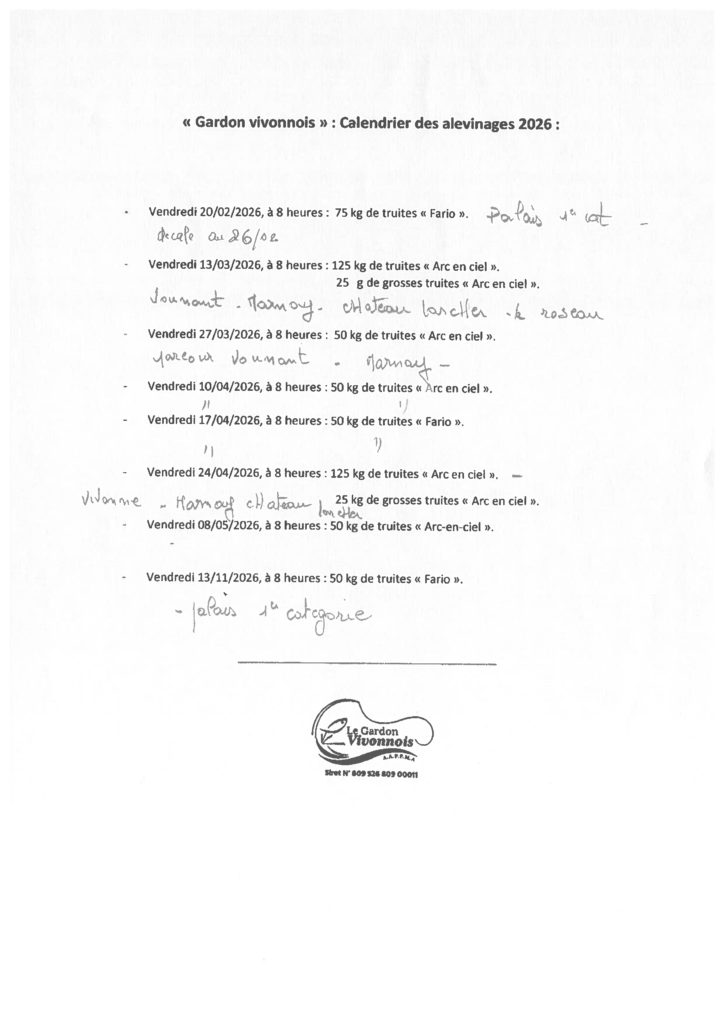 « Gardon vivonnois » : Calendrier des alevinages 2026 :
- Vendredi 20/02/2026, à 8 heures : 75 kg de truites « Fario ». Palais 1er cat -
decale au 26/02
- Vendredi 13/03/2026, à 8 heures : 125 kg de truites « Arc en ciel ».
25 g de grosses truites « Arc en ciel ».
Vounant - Marnay - CHateau larcHer - le roseau
- Vendredi 27/03/2026, à 8 heures : 50 kg de truites « Arc en ciel ».
parcour Vounant - Marnay -
- Vendredi 10/04/2026, à 8 heures : 50 kg de truites « Arc en ciel ».
" "
- Vendredi 17/04/2026, à 8 heures : 50 kg de truites « Fario ».
" "
- Vendredi 24/04/2026, à 8 heures : 125 kg de truites « Arc en ciel ». -
Vivonne - Marnay cHateau larcHer 25 kg de grosses truites « Arc en ciel ».
- Vendredi 08/05/2026, à 8 heures : 50 kg de truites « Arc-en-ciel ».
-
- Vendredi 13/11/2026, à 8 heures : 50 kg de truites « Fario ».
- palais 1er categorie
Le Gardon
Vivonnois
A.A.P.P.M.A
Siret N° 809 526 809 00011